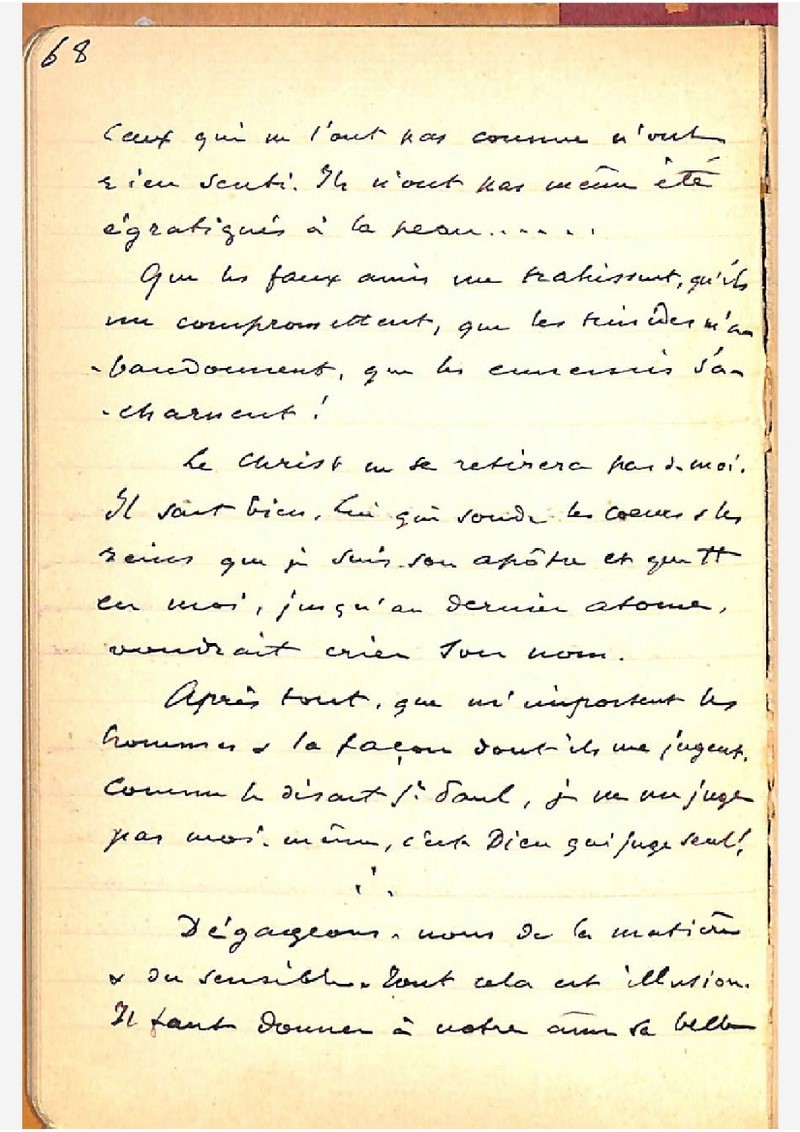 68
Ceux qui ne l'ont pas connue n'ont
rien senti. Ils n'ont pas même été
égratignés à la peau......
Que les faux amis me trahissent, qu'ils
me compromettent, que les timides m'a-
-bandonnent, que les ennemis s'a-
-charnent !
Le Christ ne se retirera pas de moi.
Il sait bien, Lui qui sonde les coeurs & les
reins que je suis son apôtre et que tt
en moi, jusqu'au dernier atome,
voudrait crier son nom.
Après tout, que m'importent les
hommes & la façon dont ils me jugent.
Comme le disait St Paul, je ne me juge
pas moi-même, c'est Dieu qui juge seul !
Dégageons-nous de la matière
& du sensible. Tout cela est illusion.
Il faut donner à notre âme sa belle